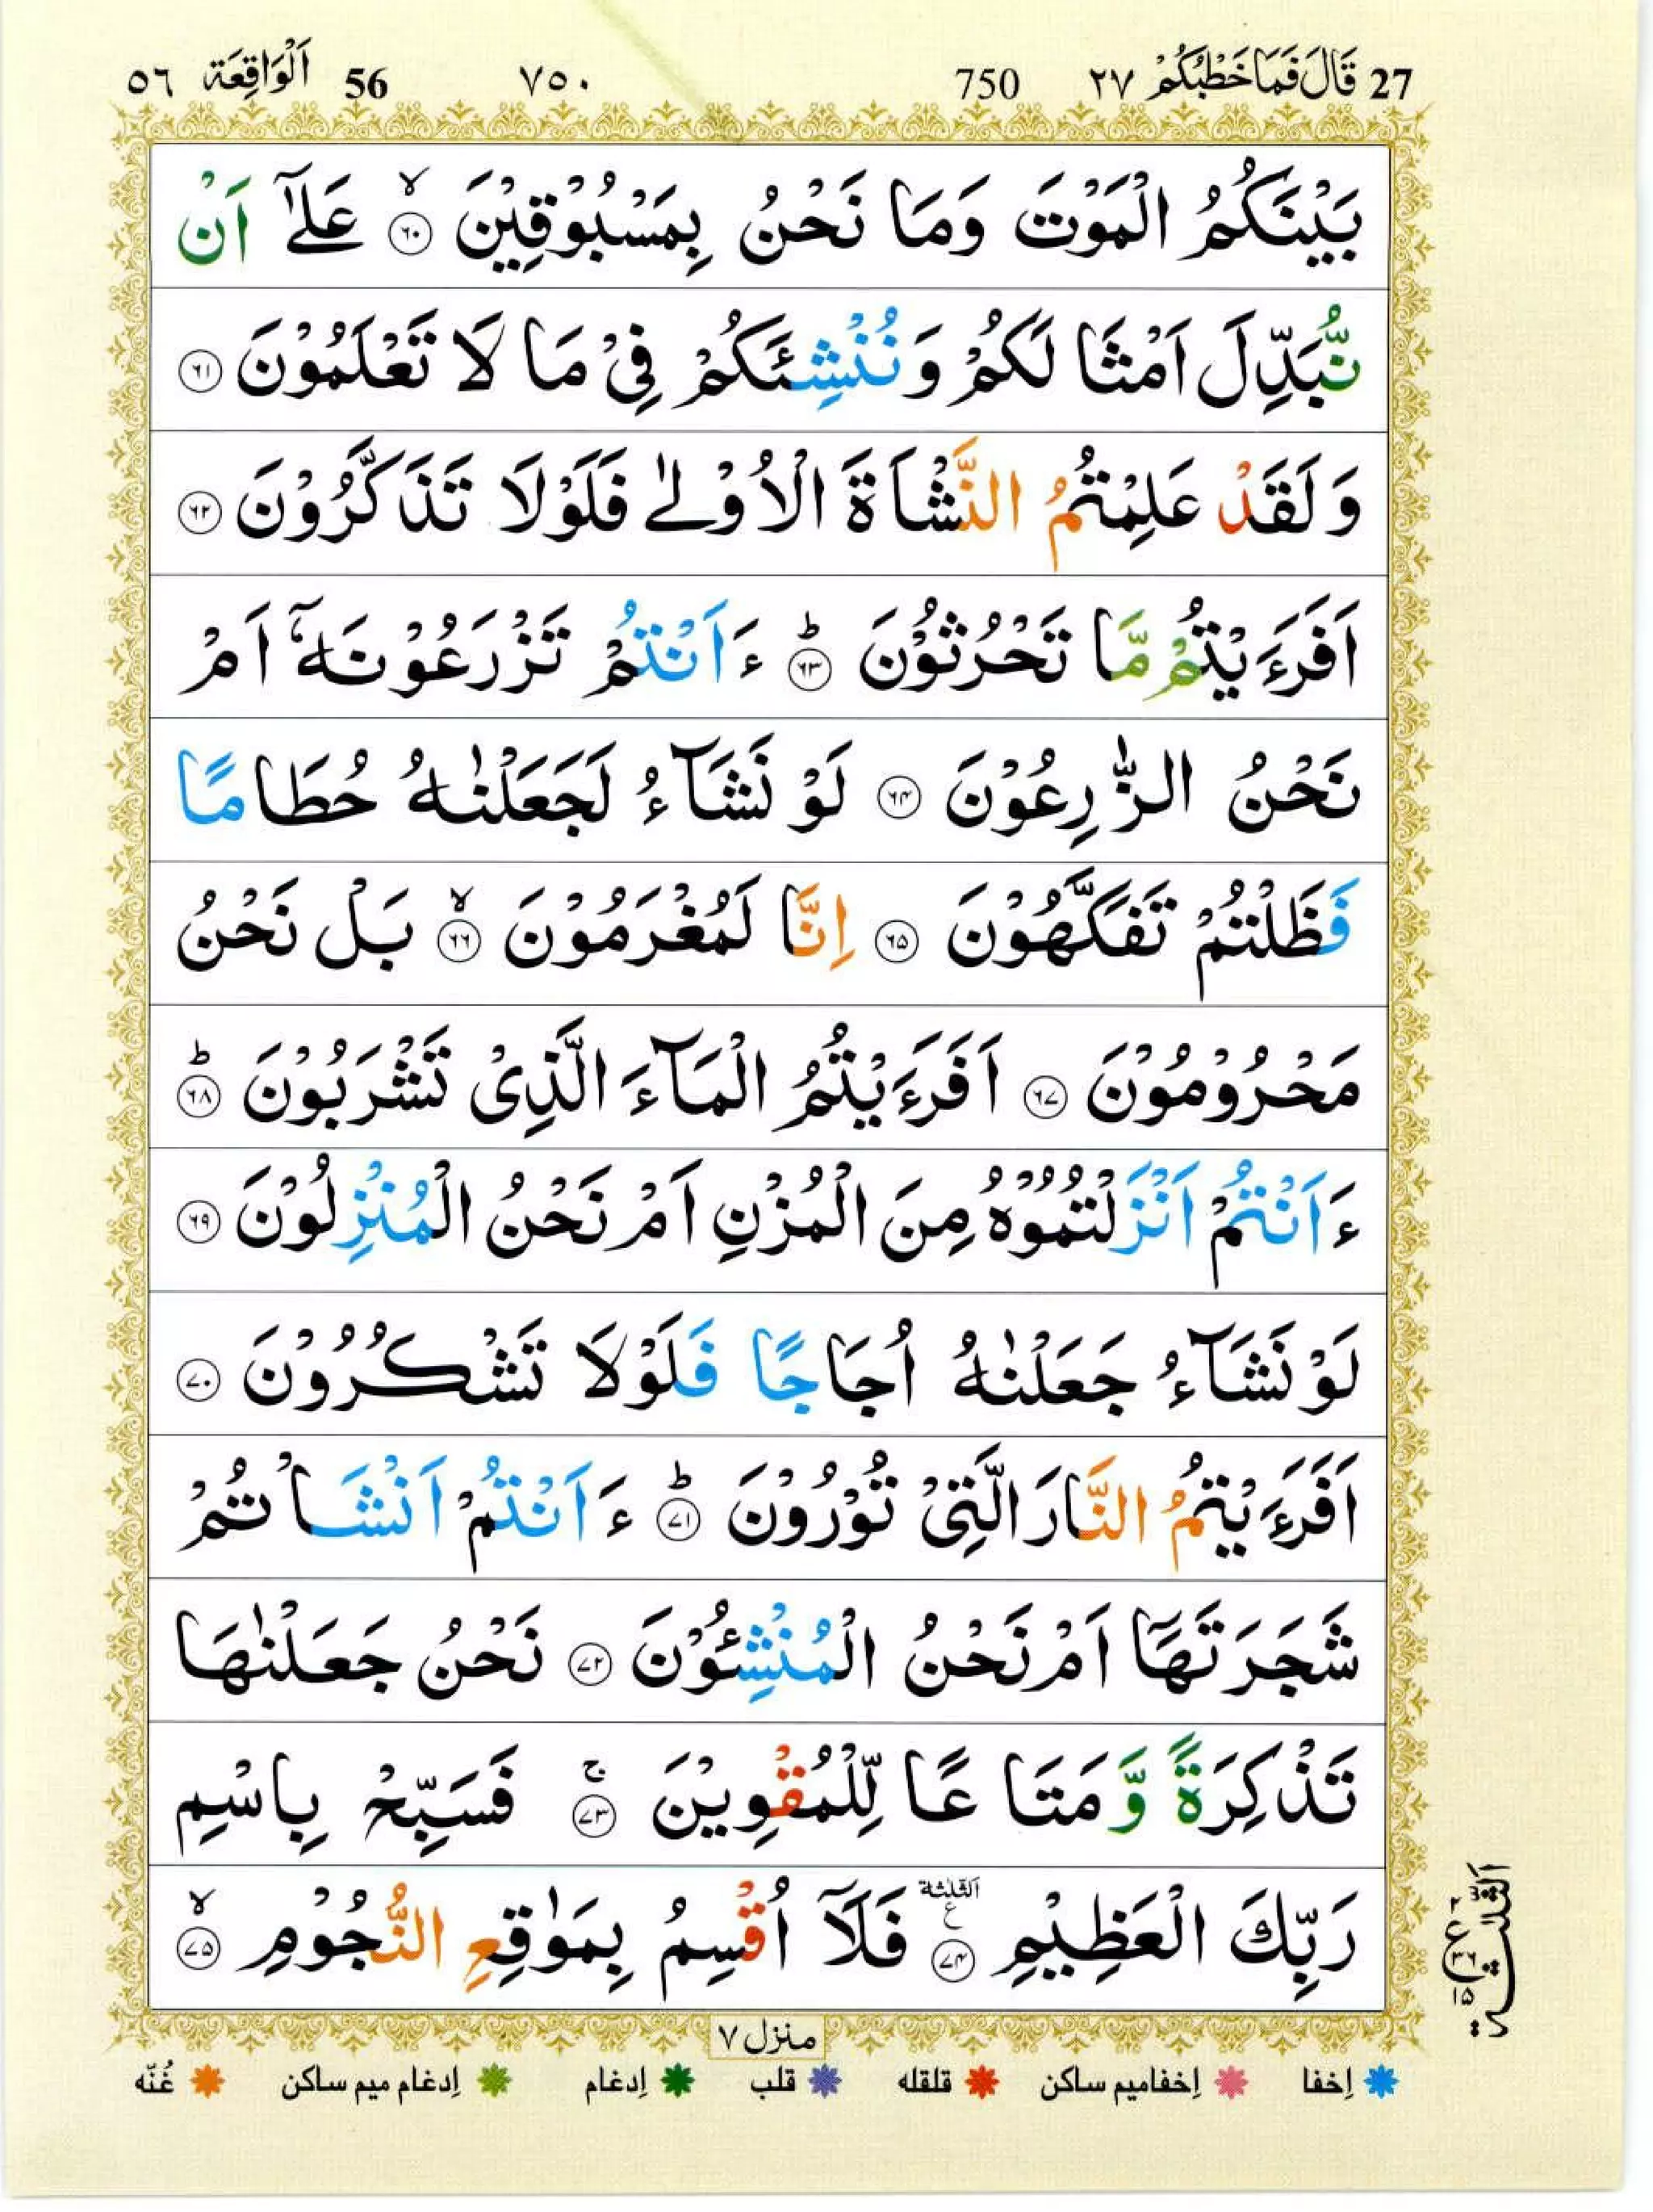 27 قَالَ فَمَا خَطْبُكُمْ ٢٧ 750 ٧٥٠ 56 اَلْوَاقِعَة ٥٦
بَيْنَكُمُ الْمَوْتَ وَمَا نَحْنُ بِمَسْبُوْقِيْنَ ۙ‏﴿۶۰﴾ عَلٰٓى اَنْ
نُّبَدِّلَ اَمْثَا لَكُمْ وَنُنْشِئَكُمْ فِىْ مَا لَا تَعْلَمُوْنَ ﴿۶۱﴾
وَلَقَدْ عَلِمْتُمُ النَّشْاَةَ الْاُوْلٰى فَلَوْلَا تَذَكَّرُوْنَ ﴿۶۲﴾
اَفَرَءَيْتُمْ مَّا تَحْرُثُوْنَ ؕ‏﴿۶۳﴾ ءَاَنْتُمْ تَزْرَعُوْنَهٗۤ اَمْ
نَحْنُ الزّٰرِعُوْنَ ﴿۶۴﴾ لَوْ نَشَآءُ لَجَعَلْنٰهُ حُطَامًا
فَظَلْتُمْ تَفَكَّهُوْنَ ﴿۶۵﴾ اِنَّا لَمُغْرَمُوْنَ ۙ‏﴿۶۶﴾ بَلْ نَحْنُ
مَحْرُوْمُوْنَ ﴿۶۷﴾ اَفَرَءَيْتُمُ الْمَآءَ الَّذِىْ تَشْرَبُوْنَ ؕ‏﴿۶۸﴾
ءَاَنْتُمْ اَنْزَلْتُمُوْهُ مِنَ الْمُزْنِ اَمْ نَحْنُ الْمُنْزِلُوْنَ ﴿۶۹﴾
لَوْ نَشَآءُ جَعَلْنٰهُ اُجَاجًا فَلَوْلَا تَشْكُرُوْنَ ﴿۷۰﴾
اَفَرَءَيْتُمُ النَّارَ الَّتِىْ تُوْرُوْنَ ؕ‏﴿۷۱﴾ ءَاَنْتُمْ اَنْشَاْتُمْ
شَجَرَتَهَاۤ اَمْ نَحْنُ الْمُنْشِئُوْنَ ﴿۷۲﴾ نَحْنُ جَعَلْنٰهَا
تَذْكِرَةً وَّمَتَاعًا لِّلْمُقْوِيْنَ ۚ‏﴿۷۳﴾ فَسَبِّحْ بِاسْمِ
رَبِّكَ الْعَظِيْمِ ﴿۷۴﴾ الثلٰثة ع فَلَاۤ اُقْسِمُ بِمَوٰقِعِ النُّجُوْمِ ۙ‏﴿۷۵﴾
الثلٰثة ع ٢ ٣٦ ١٥
منزل ٧
إخفا إخفاميم ساكن قلقله قلب إدغام إدغام ميم ساكن غُنّه